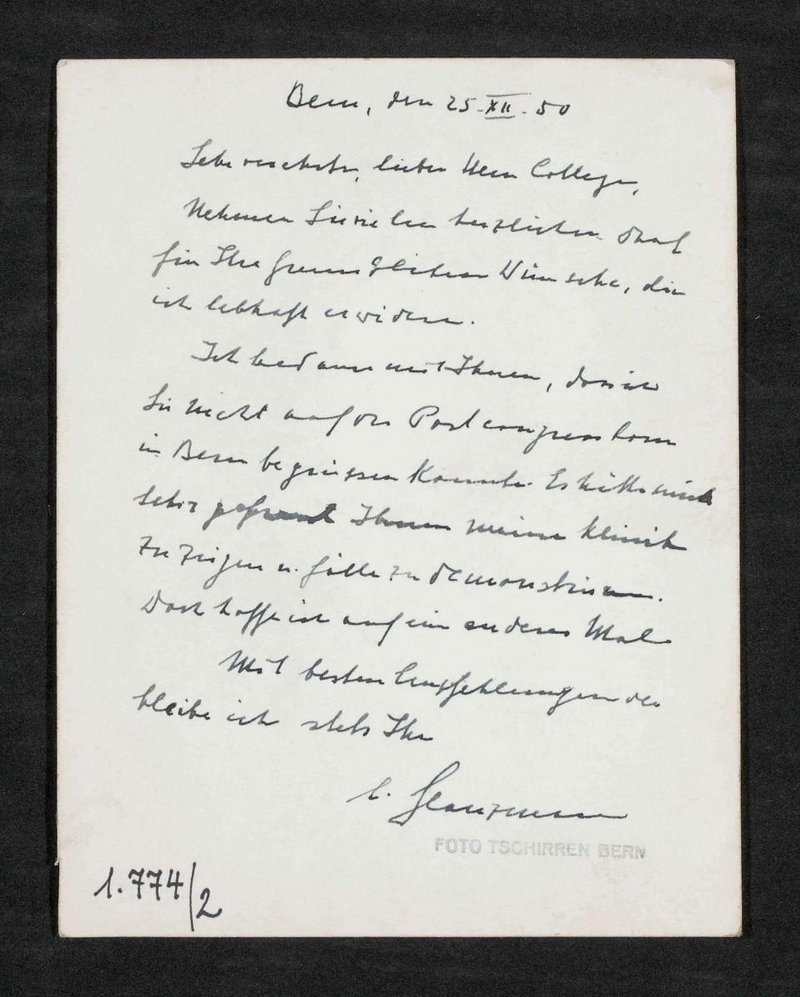 Bern, den 25.XII.50
Sehr verehrter, lieber Herr College,
Nehmen Sie vielen herzlichen Dank
für Ihre freundlichen Wünsche, die
ich lebhaft erwidere.
Ich bedaure mit Ihnen, dass ich
Sie nicht auf der Postcongresstour
in Bern begrüssen konnte. Es hätte mich
sehr gefreut Ihnen meine Klinik
zu zeigen u. Fälle zu demonstrieren.
Doch hoffe ich auf ein anderes Mal
Mit besten Empfehlungen
bleibe ich stets Ihr
E. Glanzmann
FOTO TSCHIRREN BERN
1.774/2